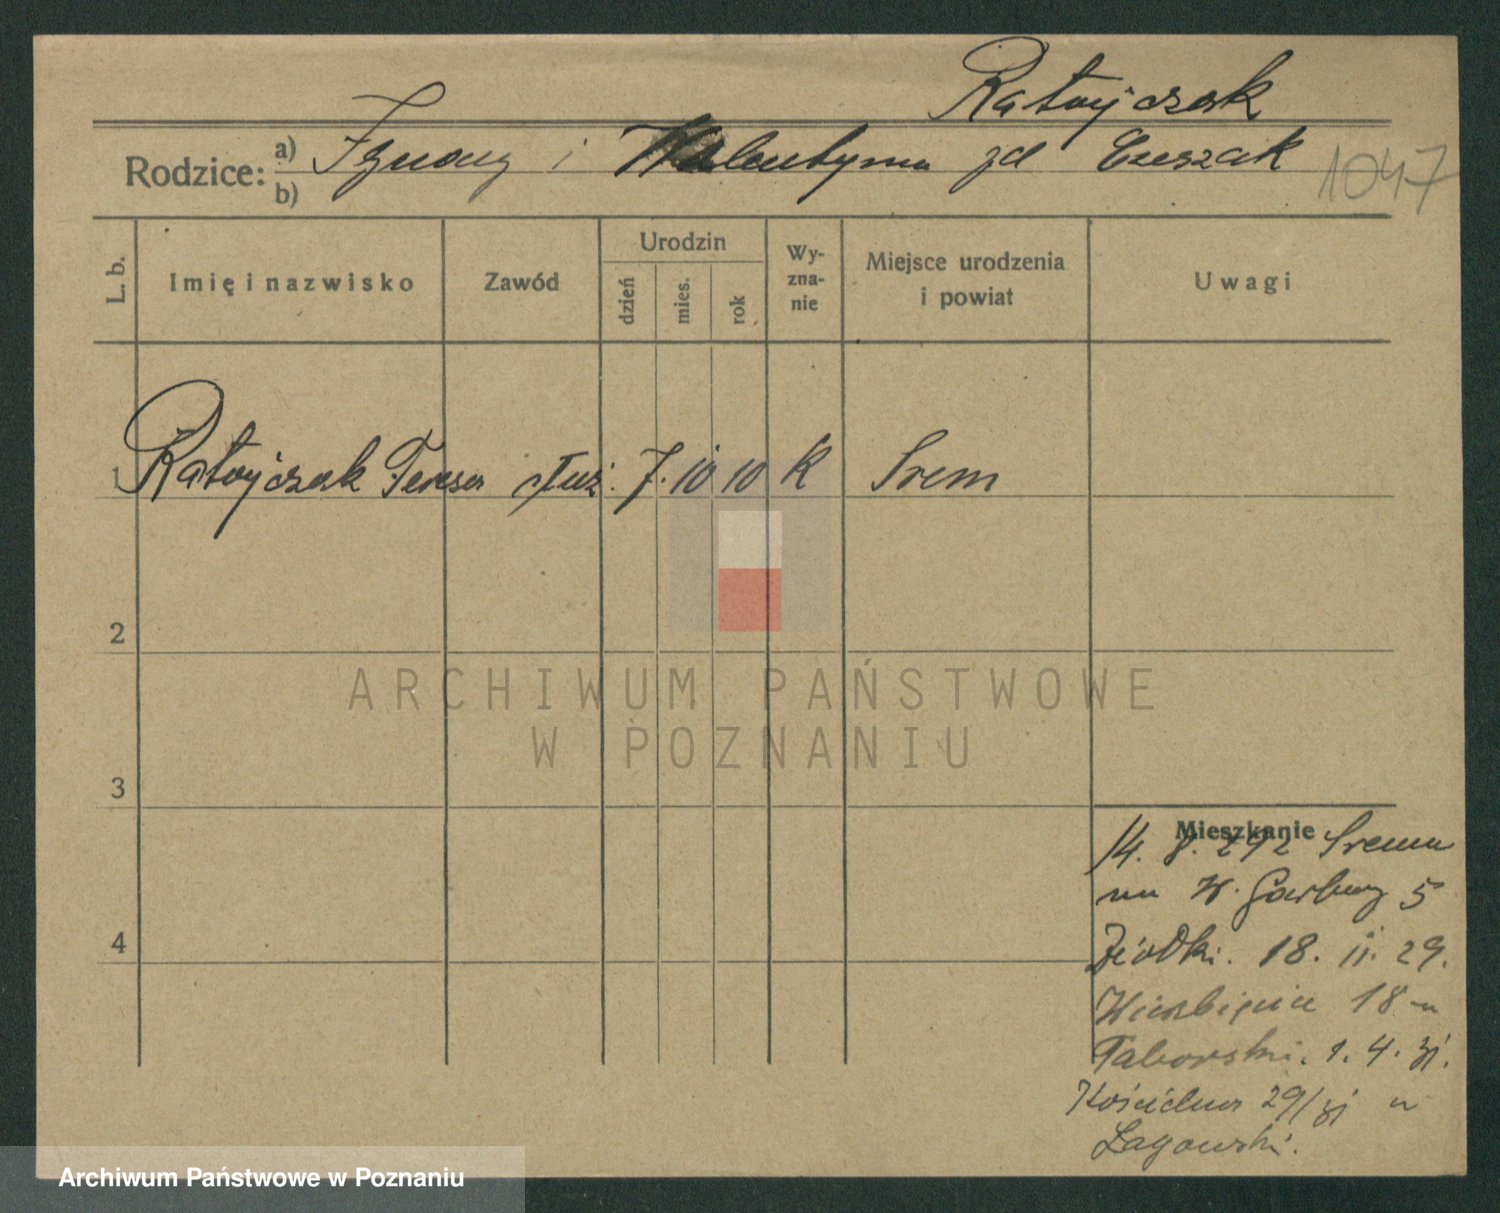 Ratajczak
Rodzice: a) Ignacy i Walentyna zd Czeszak
b)
1047
L. b.
Imię i nazwisko
Zawód
Urodzin
dzień
mies.
rok
Wy-
zna-
nie
Miejsce urodzenia
i powiat
Uwagi
1 Ratajczak Teresa służ. 7. 10 10 K Śrem
2
3
4
Mieszkanie
14. 8. Śremu
na W. Garbary 5
18. 11. 29.
Wierzbięcice 18 u
Taborski. 1. 4. 31.
29/31 u
Łagowski.
ARCHIWUM PAŃSTWOWE
W POZNANIU
Archiwum Państwowe w Poznaniu